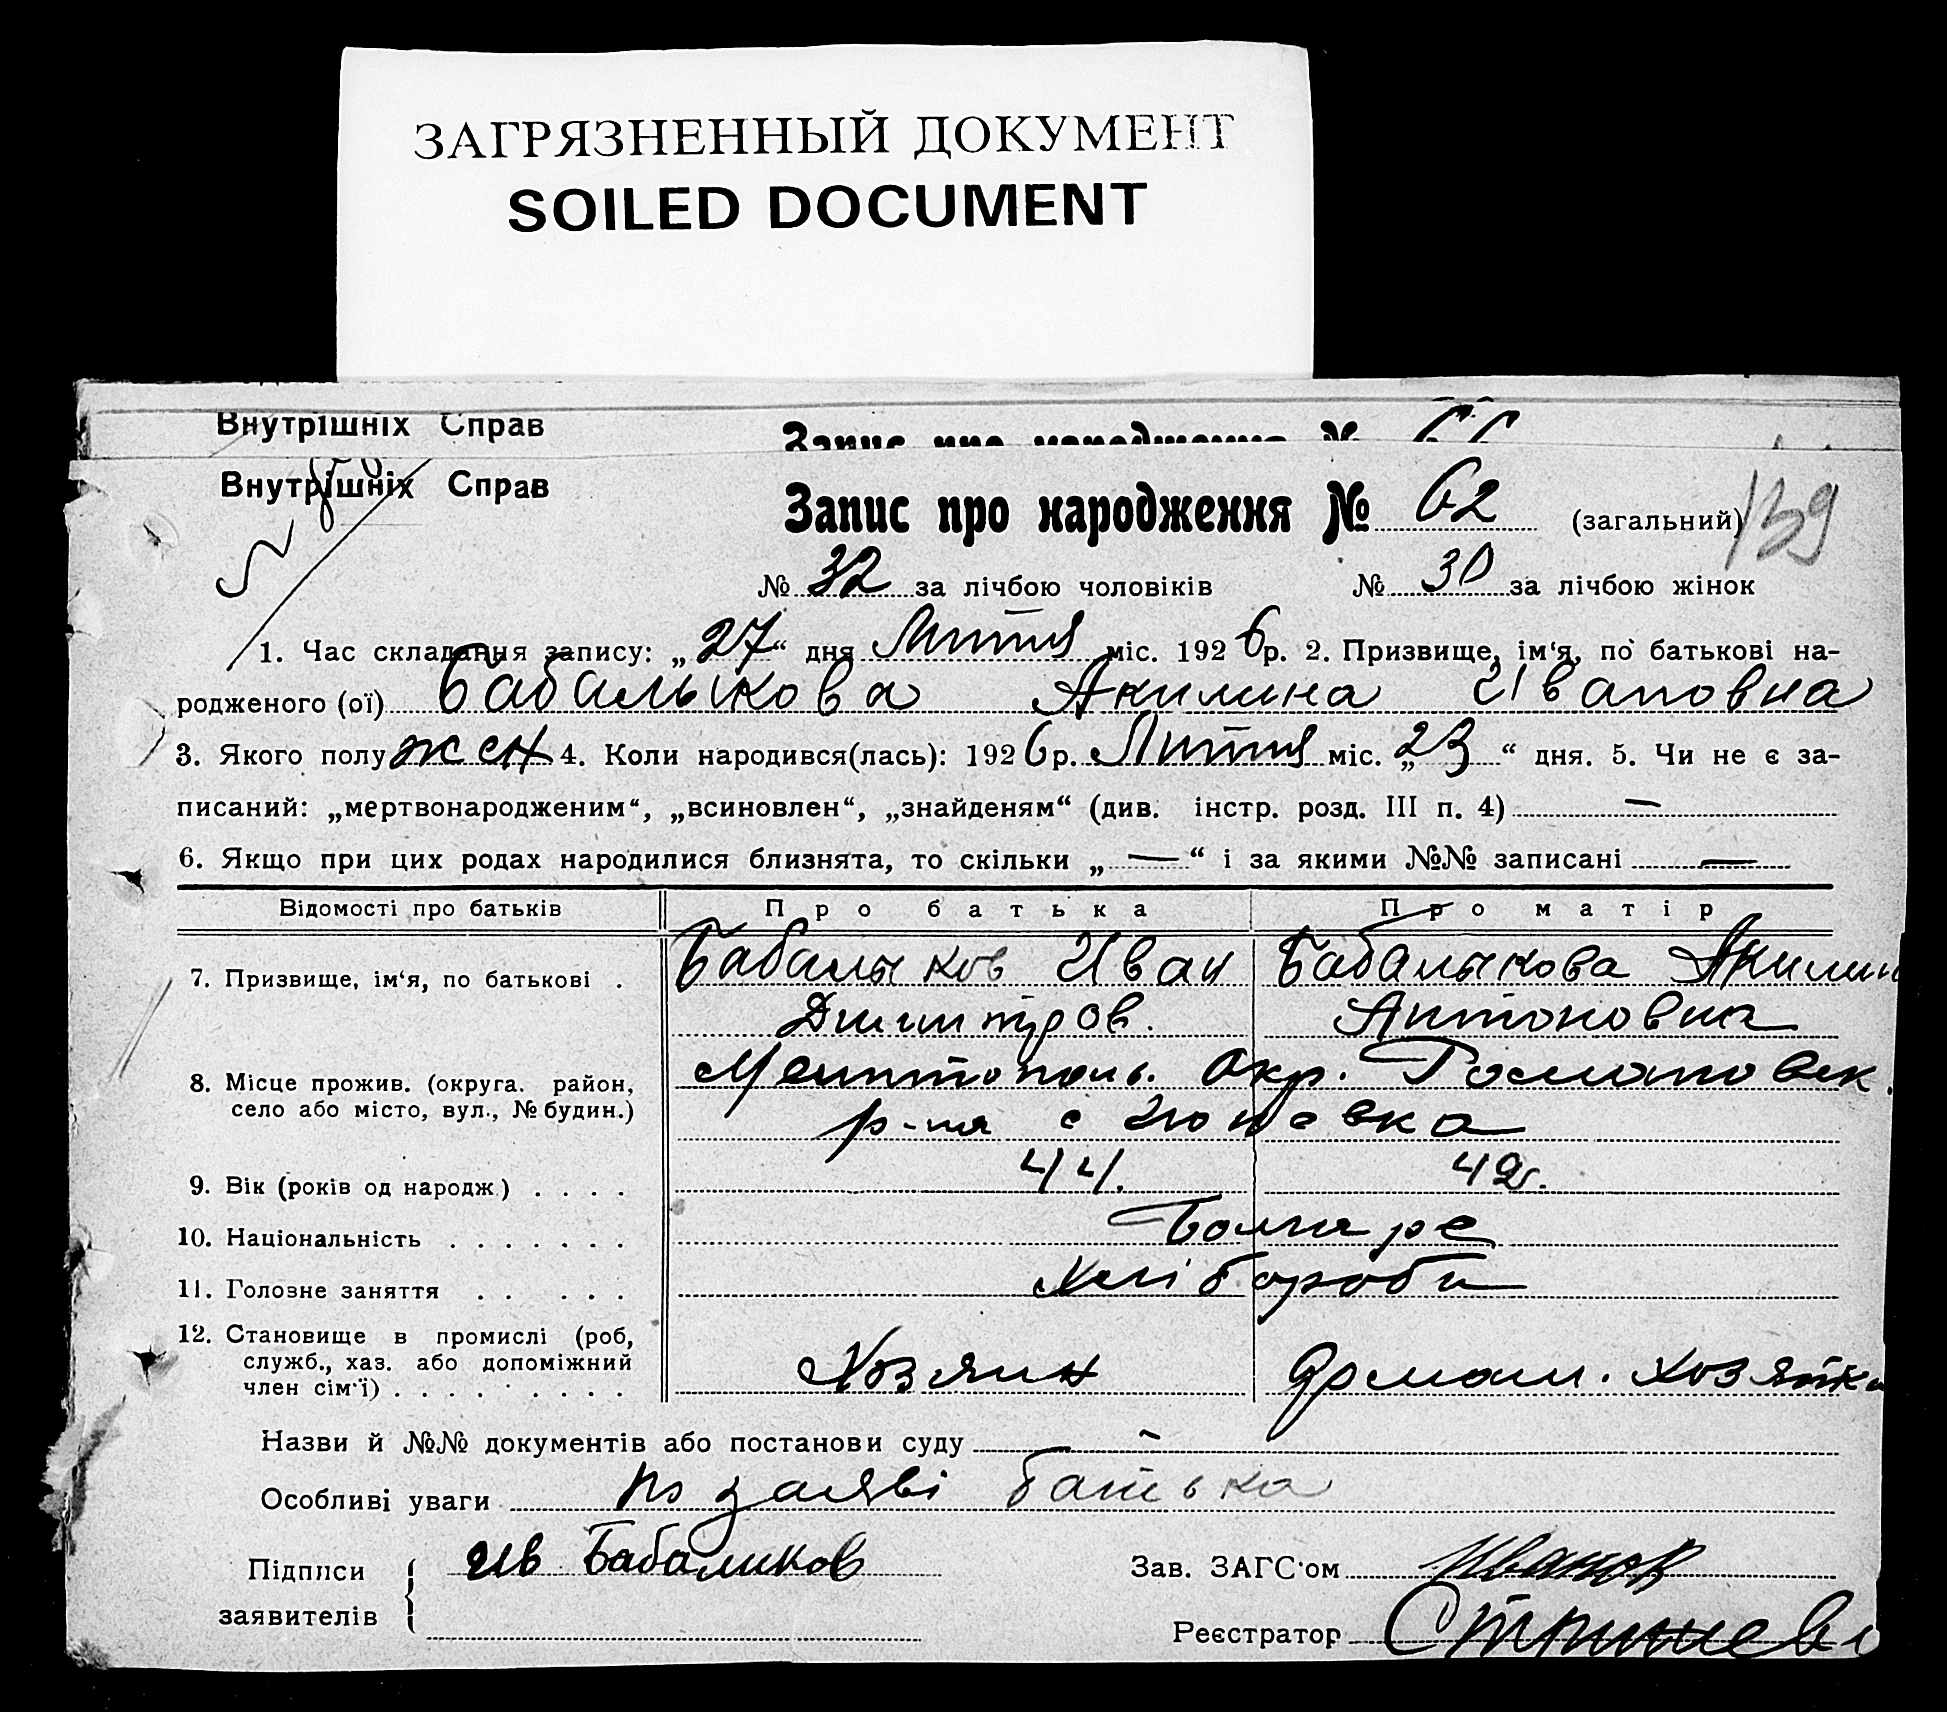 ЗАГРЯЗНЕННЫЙ ДОКУМЕНТ
SOILED DOCUMENT
Внутрішніх Справ
Запис про народження №
Внутрішніх Справ
Запис про народження № 62 (загальний) 139
№ 32 за лічбою чоловіків № 30 за лічбою жінок
1. Час складання запису: „27“ дня Лютня міс. 1926 р. 2. Призвище, ім‘я, по батькові на-
родженого (ої) Бабалыкова Акилина Ивановна
3. Якого полу жен 4. Коли народився(лась): 1926 р. Лютня міс. „23“ дня. 5. Чи не є за-
писаний: „мертвонародженим“, „всиновлен“, „знайденям“ (див. інстр. розд. III п. 4) —
6. Якщо при цих родах народилися близнята, то скільки „—“ і за якими №№ записані —
Відомості про батьків Про батька Про матір
7. Призвище, ім‘я, по батькові . Бабалыков Иван Бабалыкова Акилин
Димитров. Антоновна
8. Місце прожив. (округа. район, Мелитополь. Окр. Романовск.
село або місто, вул., № будин.) р-на с
9. Вік (років од народж.) . . . . 44. 42.
10. Національність . . . . . . . Болгаре
11. Головне заняття . . . . . Хлібороби
12. Становище в промислі (роб,
служб., хаз. або допоміжний Хозяин хозяйка
член сім‘ї) . . . . . . . . .
Назви й №№ документів або постанови суду
Особливі уваги по заяві батька
Підписи Ив Бабаликов Зав. ЗАГС‘ом Иванов
заявителів Реєстратор